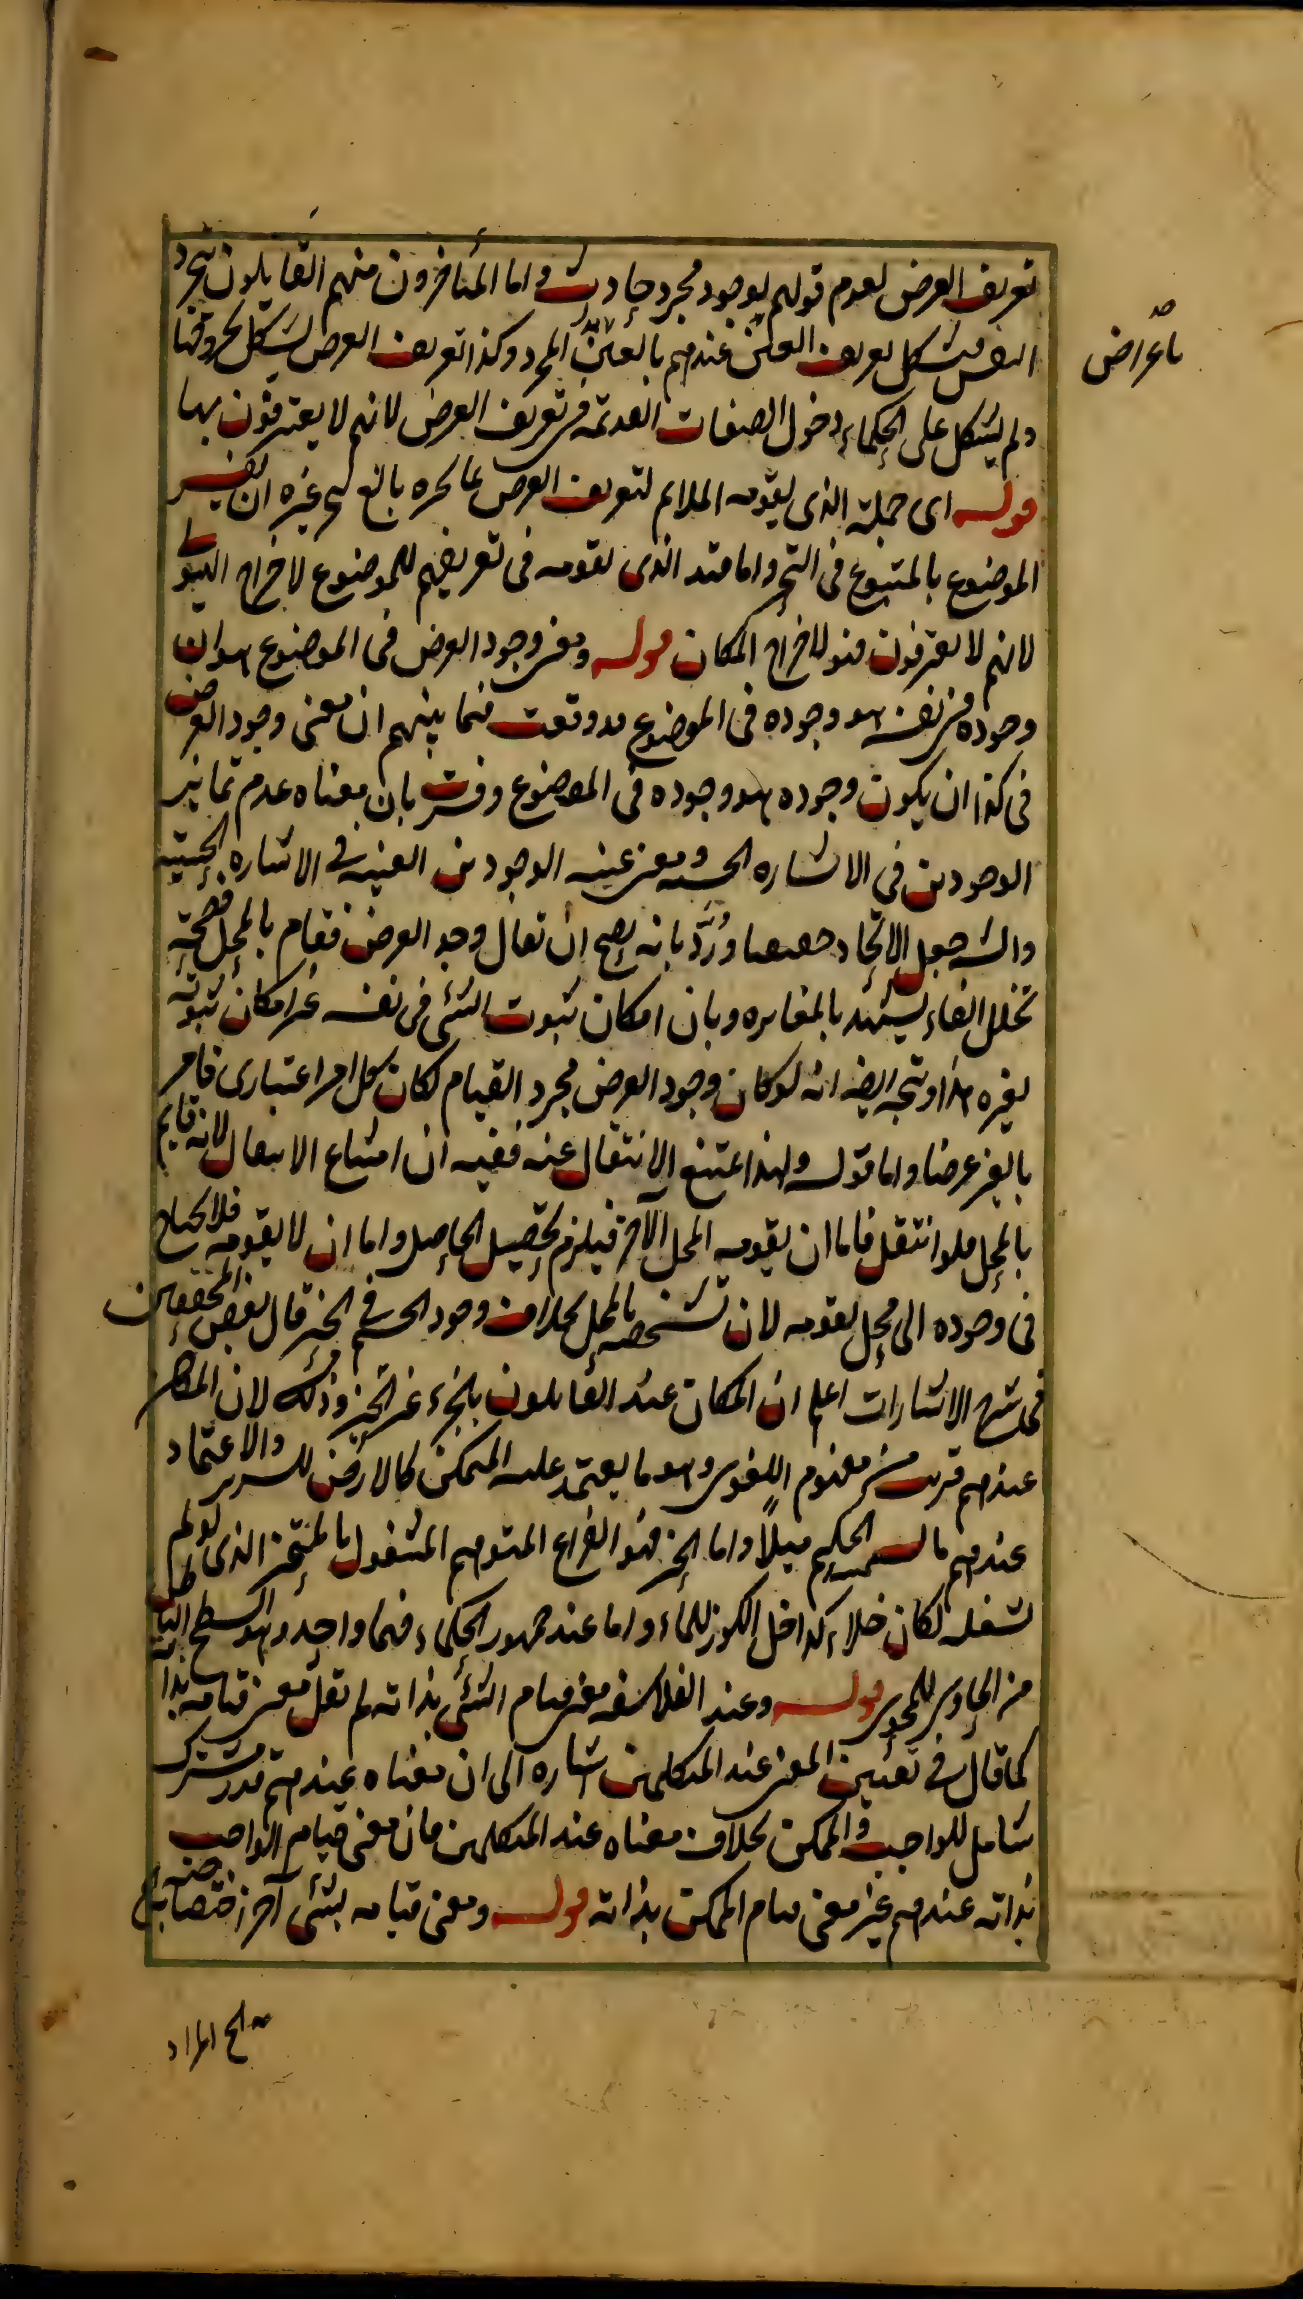 تعريف العرض لعدم قولهم بوجود مجرد حادث واما المتأخرون منهم القايلون بتجرد
النفس فيشكل تعريف العين عندهم بالعين المجرد وكذا تعريف العرض يشكل بخروجها
باعراض صح
ولم يشكل على الحكماء دخول الصفات القديمة في تعريف العرض لانهم لا يعترفون بها
قوله اى محله الذى يقومه الملايم لتعريف العرض بما تحيزه تابع لتحيز غيره ان يفسر
الموضوع بالمتبوع في التحيز واما قيد الذى يقومه في تعريفهم للموضوع لاخراج الهيولى
لانهم لا يعترفون فهو لاخراج المكان قوله ومعنى وجود العرض في الموضوع هو ان
وجوده في نفسه هو وجوده في الموضوع قد وقعت فيما بينهم ان معنى وجود العرض
في كذا ان يكون وجوده هو وجوده في الموضوع وفسرت بان معناه عدم تمايز
الوجودين في الاشارة الحسية ومعنى عينية الوجودين العينية في الاشارة الحسية
والشه جعل الاتحاد حقيقيا ورُدّ بانه يصح ان تقال وجد العرض فقام بالمحل فصحة
تخلل الفاء يشهد بالمغايرة وبان امكان ثبوت الشئ في نفسه غير امكان ثبوته
لغيره هذا ويتجه ايضه انه لو كان وجود العرض مجرد القيام لكان كل امر اعتبارى قام
بالغير عرضا واما قوله ولهذا يمتنع الانتقال عنه ففيه ان امتناع الانتقال لانه قايم
بالمحل فلو انتقل فاما ان يقومه المحل الآخر فيلزم تحصيل الحاصل واما ان لا يقومه فلا يحتاج
في وجوده الى محل يقومه لان تشخصه بالمحل بخلاف وجود الجسم في الحيز قال بعض المحققين
في شرح الاشارات اعلم ان المكان عند القايلون بالجزء غير الحيز وذلك لان المكان
عندهم قريب من مفهوم اللغوى وهو ما يعتمد عليه المتمكن كالارض للسرير والاعتماد
عندهم ما يسميه الحكيم ميلاً واما الحيز فهو الفراغ المتوهم المشغول بالمتحيز الذى لو لم
يشغله لكان خلاء كداخل الكوز للماء واما عند جمهور الحكماء فهما واحد وهو السطح الباطن
من الحاوى للمحوى قوله وعند الفلاسفه معنى قيام الشئ بذاته لم تقل معنى قيامه بذاته
كما قال في تعيين المعنى عند المتكلمين اشاره الى ان معناه عندهم قدر مشترك
شامل للواجب والممكن بخلاف معناه عند المتكلمين فان معنى قيام الواجب
بذاته عندهم غير معنى قيام الممكن بذاته قوله ومعنى قيامه بشئ آخر اختصاصه به
المراد